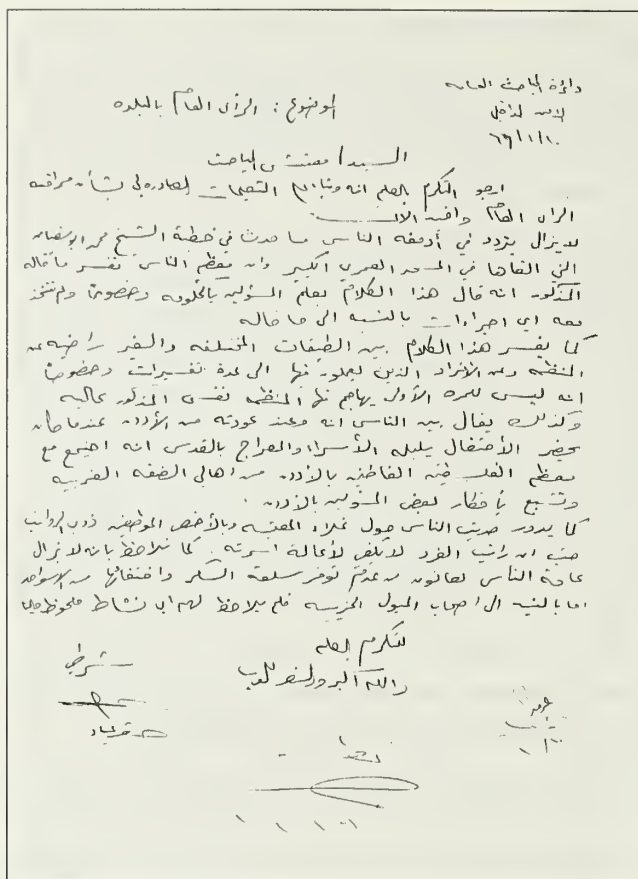 دائرة المباحث العامه
الامن الداخلي
الموضوع : الرأي العام بالبلده
السيد / مفتش المباحث
ارجو التكرم بالعلم انه وتبا التعليمات الصادره لي بشأن مراقبه
الرأي العام وافيد الا
لا يزال يتردد في أوساط الناس ما حدث في خطبة الشيخ محمد
التي القاها في المسجد العمري الكبير وان معظم الناس تفسر ما قاله
المذكور انه قال هذا الكلام بعلم المسؤولين بالحكومه وخصوصاً ولم تتخذ
معه اي اجراءات بالنسبه الى ما قاله
كما يفسر هذا الكلام بين الطبقات المختلفه والغير راضيه عن
المنظمه وعن الأفراد الذين يعملون فيها الى عدة تفسيرات وخصوصاً
انه ليس للمره الأولى يهاجم فيها المنظمه نفس المذكور عاليه
وكذلك يقال بين الناس انه وعند عودته من الأردن عندما كان
يحضر الأحتفال بليلة الأسراء والمعراج بالقدس انه اجتمع مع
معظم الفلسطينين القاطنين بالأردن من اهالي الضفه الغربيه
وتشبع بأفكار بعض المسؤولين بالأردن .
كما يدور حديث الناس حول غلاء المعيشه وبالأخص الموظفين ذوي الرواتب
حيث ان راتب الفرد لا يكفي لأعالة اسرته . كما نلاحظ بانه لا يزال
عامة الناس يعانون من عدم توفر سلعة السكر واختفائها من الاسواق
اما بالنسبه الى اصحاب الميول الحزبيه فلم يلاحظ لهم اي نشاط ملحوظ حاليا
للتكرم بعلمه
والله اكبر والنصر للعرب
شرطي